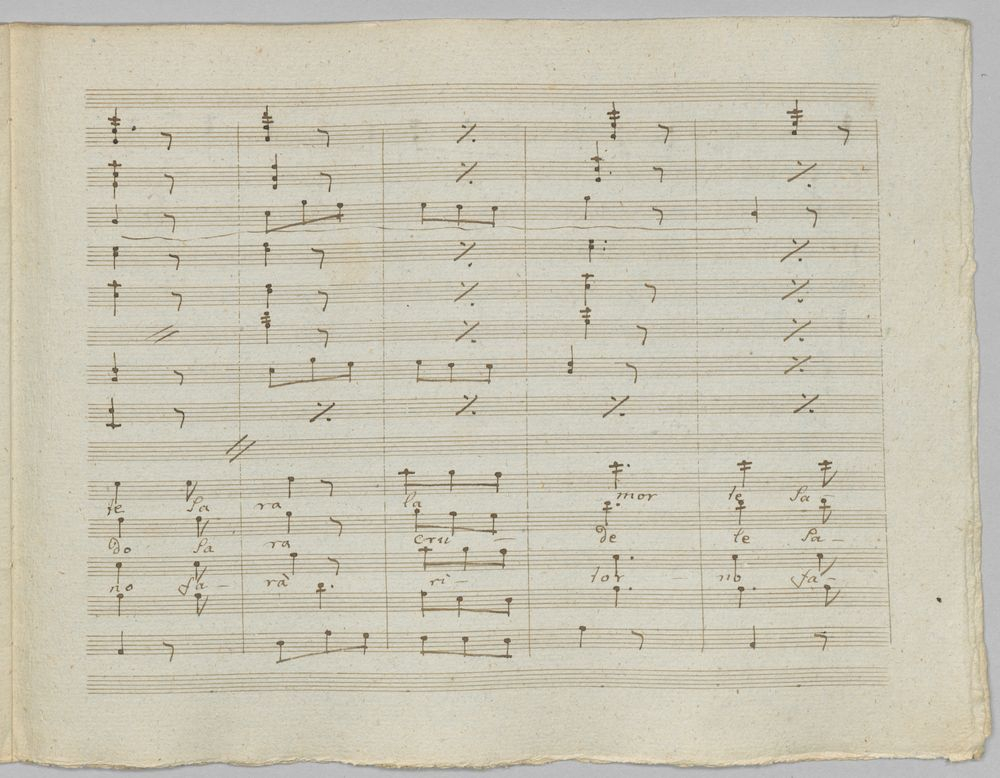 te sa ra la mor te sa-
do sa ra cru - de le sa-
no fa- rà ri- tor - no fa-